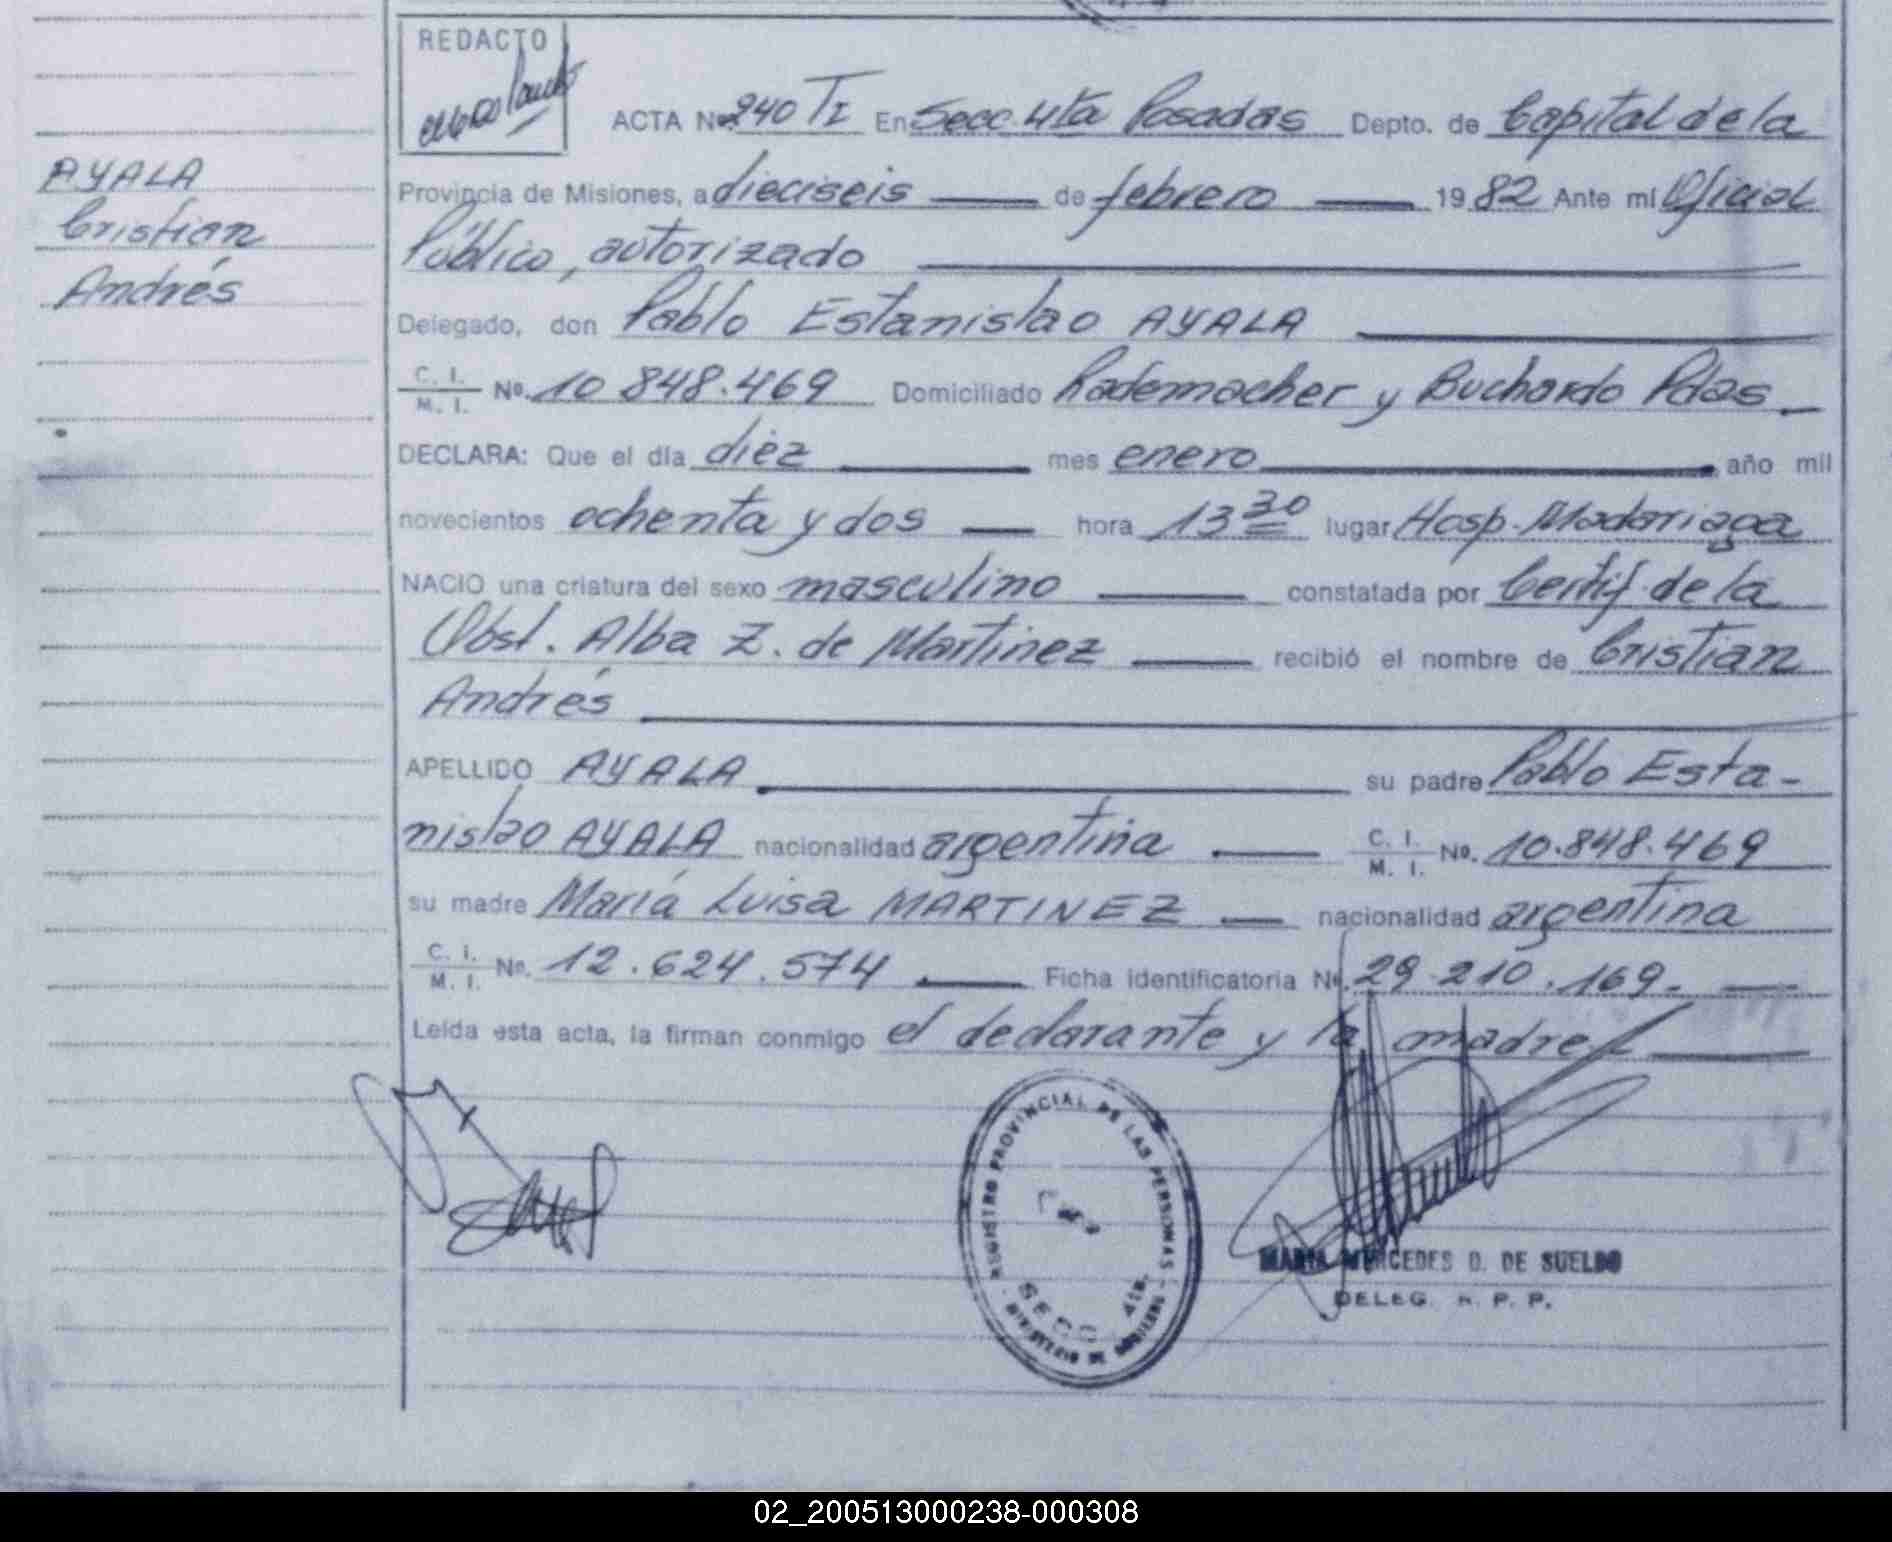 REDACTO
ACTA Nº 240 TI En Secc. 4ta Posadas Depto. de Capital de la
AYALA
Provincia de Misiones, a dieciseis de febrero 1982 Ante mí Oficial
Cristian
Público, autorizado
Andrés
Delegado, don Pablo Estanislao AYALA
C. I. / M. I. Nº. 10 848.469 Domiciliado Rademacher y Buchardo Pdas
DECLARA: Que el día diez mes enero año mil
novecientos ochenta y dos hora 13 30 lugar Hosp. Madariaga
NACIO una criatura del sexo masculino constatada por Certif. de la
Obst. Alba Z. de Martinez recibió el nombre de Cristian
Andrés
APELLIDO AYALA su padre Pablo Esta-
nislao AYALA nacionalidad argentina C. I. / M. I. Nº. 10.848.469
su madre María Luisa MARTINEZ nacionalidad argentina
C. I. / M. I. Nº. 12.624.574 Ficha identificatoria Nº. 29.210.169.
Leída esta acta, la firman conmigo el declarante y la madre
REGISTRO PROVINCIAL DE LAS PERSONAS - MISIONES
SECC. 4ta.
MARIA MERCEDES D. DE SUELDO
DELEG. R. P. P.
02_200513000238-000308